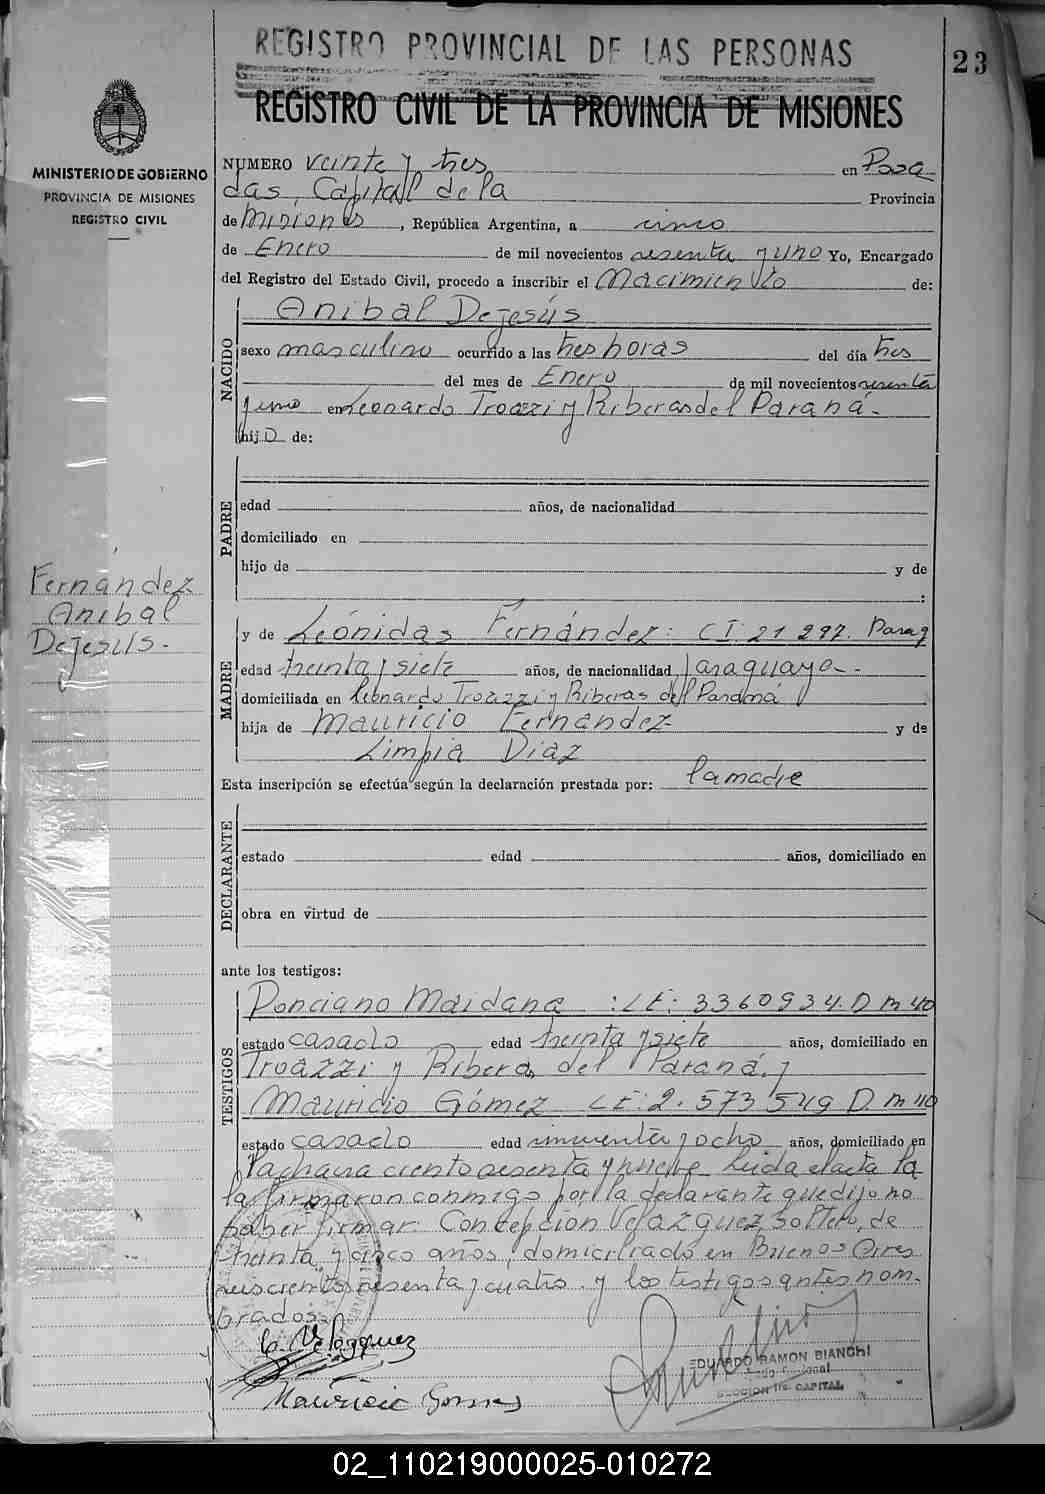 REGISTRO PROVINCIAL DE LAS PERSONAS
23
REGISTRO CIVIL DE LA PROVINCIA DE MISIONES
MINISTERIO DE GOBIERNO
PROVINCIA DE MISIONES
REGISTRO CIVIL
NUMERO veinte y tres en Posa
das, Capital de la Provincia
de Misiones, República Argentina, a cinco
de Enero de mil novecientos sesenta y uno Yo, Encargado
del Registro del Estado Civil, procedo a inscribir el Nacimiento de:
NACIDO
Anibal Dejesús
sexo masculino ocurrido a las tres horas del día tres
del mes de Enero de mil novecientos sesenta
y uno en Leonardo Troazzi y Riberas del Paraná.-
hijo de:
PADRE
edad años, de nacionalidad
domiciliado en
hijo de y de
:
Fernandez
Anibal
Dejesús.-
MADRE
y de Leónidas Fernández: CI: 21 297. Parag
edad treinta y siete años, de nacionalidad paraguaya.-
domiciliada en Leonardo Troazzi y Riberas del Paraná
hija de Mauricio Fernandez y de
Limpia Diaz
Esta inscripción se efectúa según la declaración prestada por: la madre
DECLARANTE
estado edad años, domiciliado en
obra en virtud de
ante los testigos:
TESTIGOS
Ponciano Maidana :LE: 3360934. D m 40
estado casado edad treinta y siete años, domiciliado en
Troazzi y Ribera del Paraná. y
Mauricio Gómez LE: 2.573549 D m 40
estado casado edad cincuenta y ocho años, domiciliado en
Chacra ciento sesenta y nueve Leida el acta la
la firmaron conmigo por la declarante que dijo no
saber firmar Concepción Velazquez soltero, de
treinta y cinco años, domiciliado en Buenos Aires
seiscientos sesenta y cuatro y los testigos antes nom-
brados.
C. Velazquez
Mauricio Gomes
EDUARDO RAMON BIANCHI
SECCION 1ra CAPITAL
02_110219000025-010272